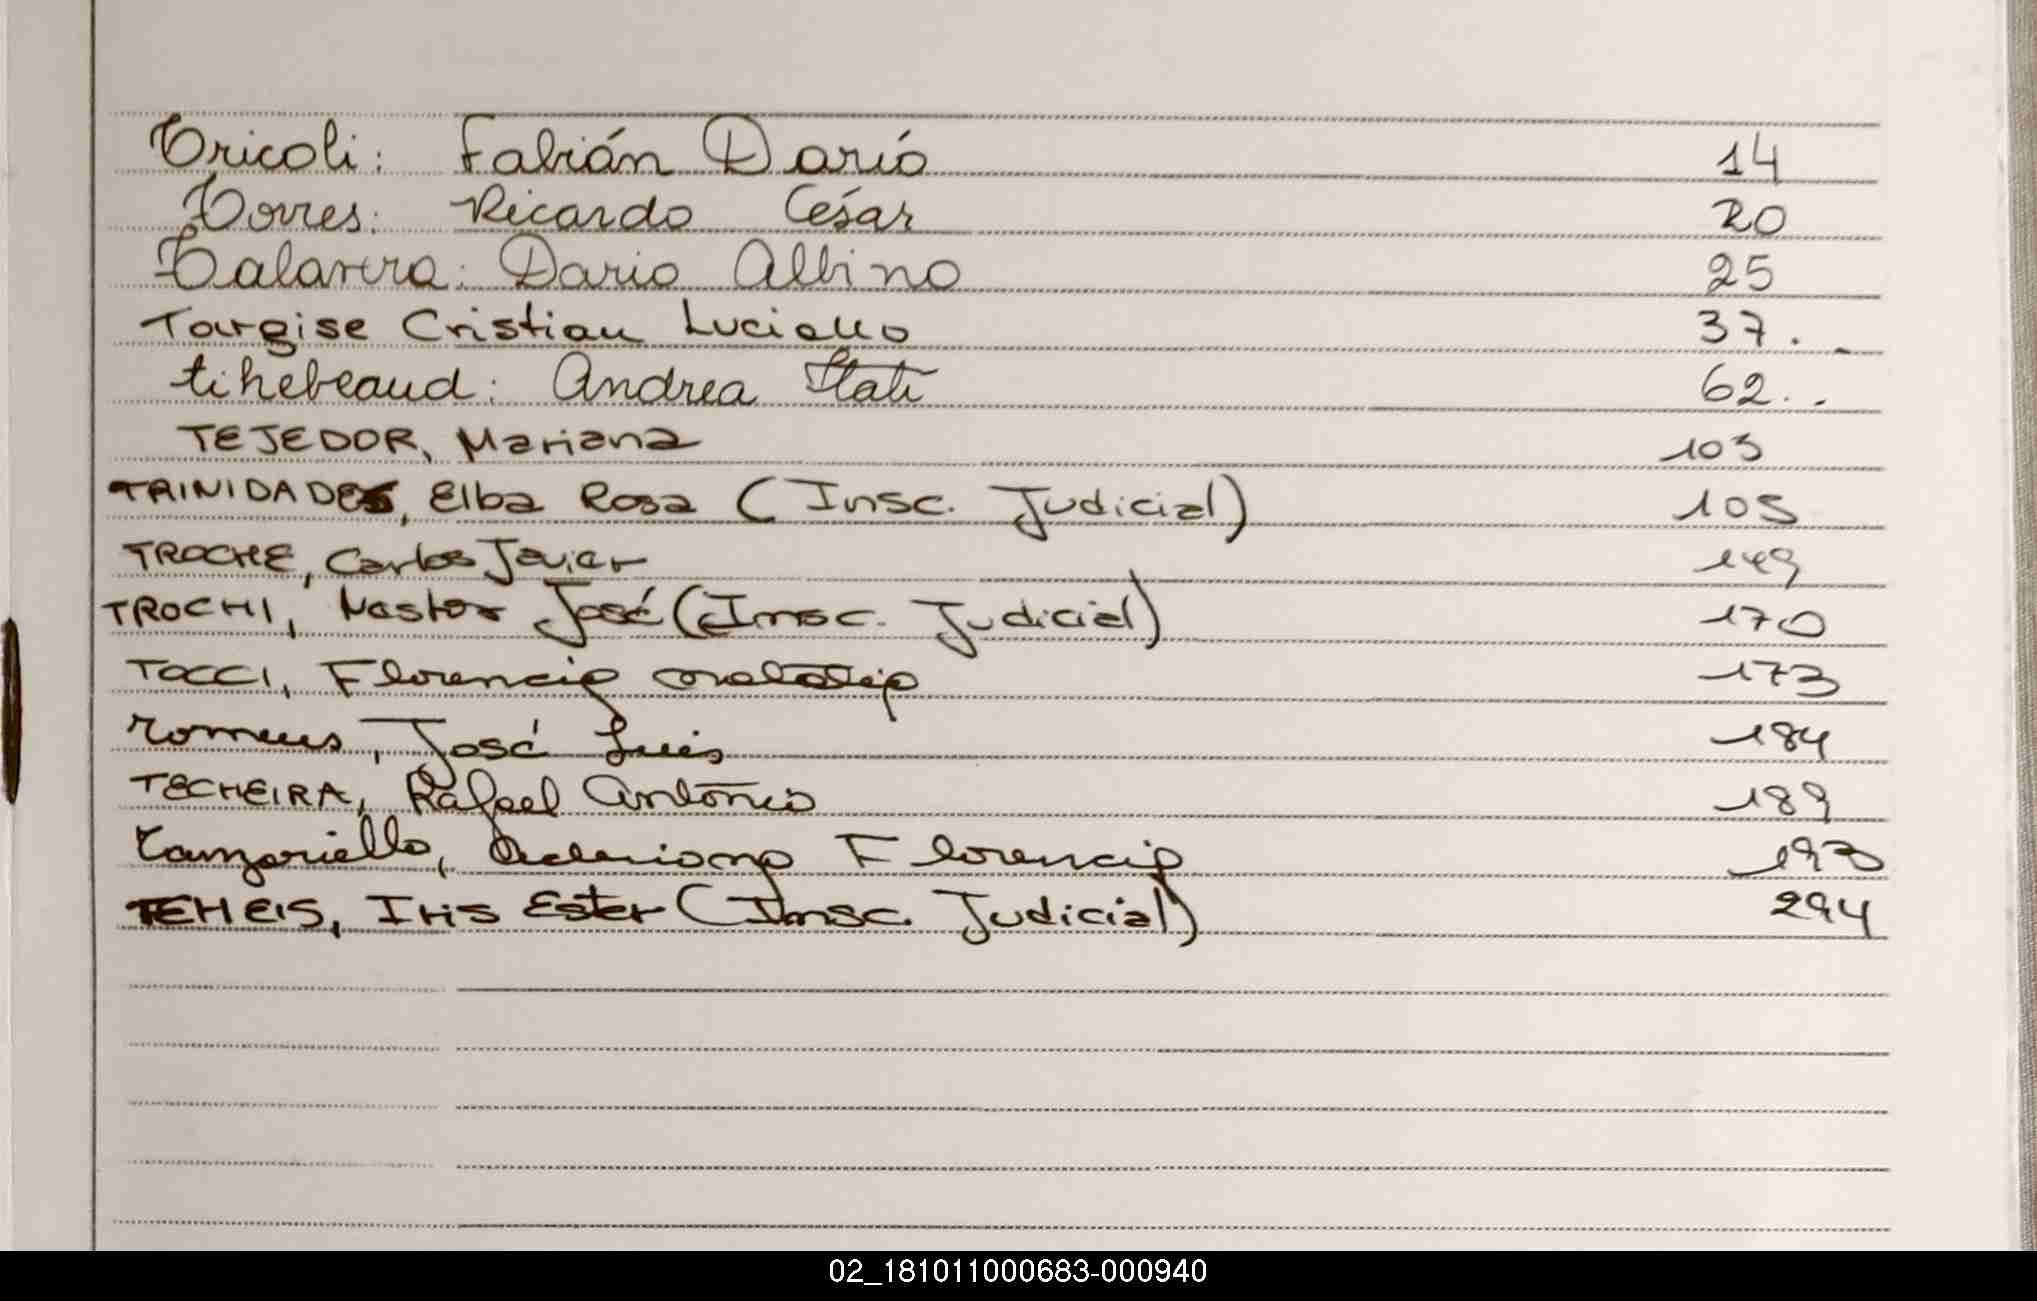 Tricoli: Fabián Darió 14
Torres: Ricardo César 20
Talavera: Dario Albino 25
Targise Cristian Luciano 37.
tihebeaud: Andrea Itatí 62..
TEJEDOR, Mariana 103
TRINIDADES, Elba Rosa (Insc. Judicial) 105
TROCHE, Carlos Javier 149
TROCHI, Nestor José (Insc. Judicial) 170
TOCCI, Florencia 173
José Luis 184
TECHEIRA, Rafael Antonio 189
Tanzariello, Florencia 193
TEHEIS, Iris Ester (Insc. Judicial) 294
02_181011000683-000940